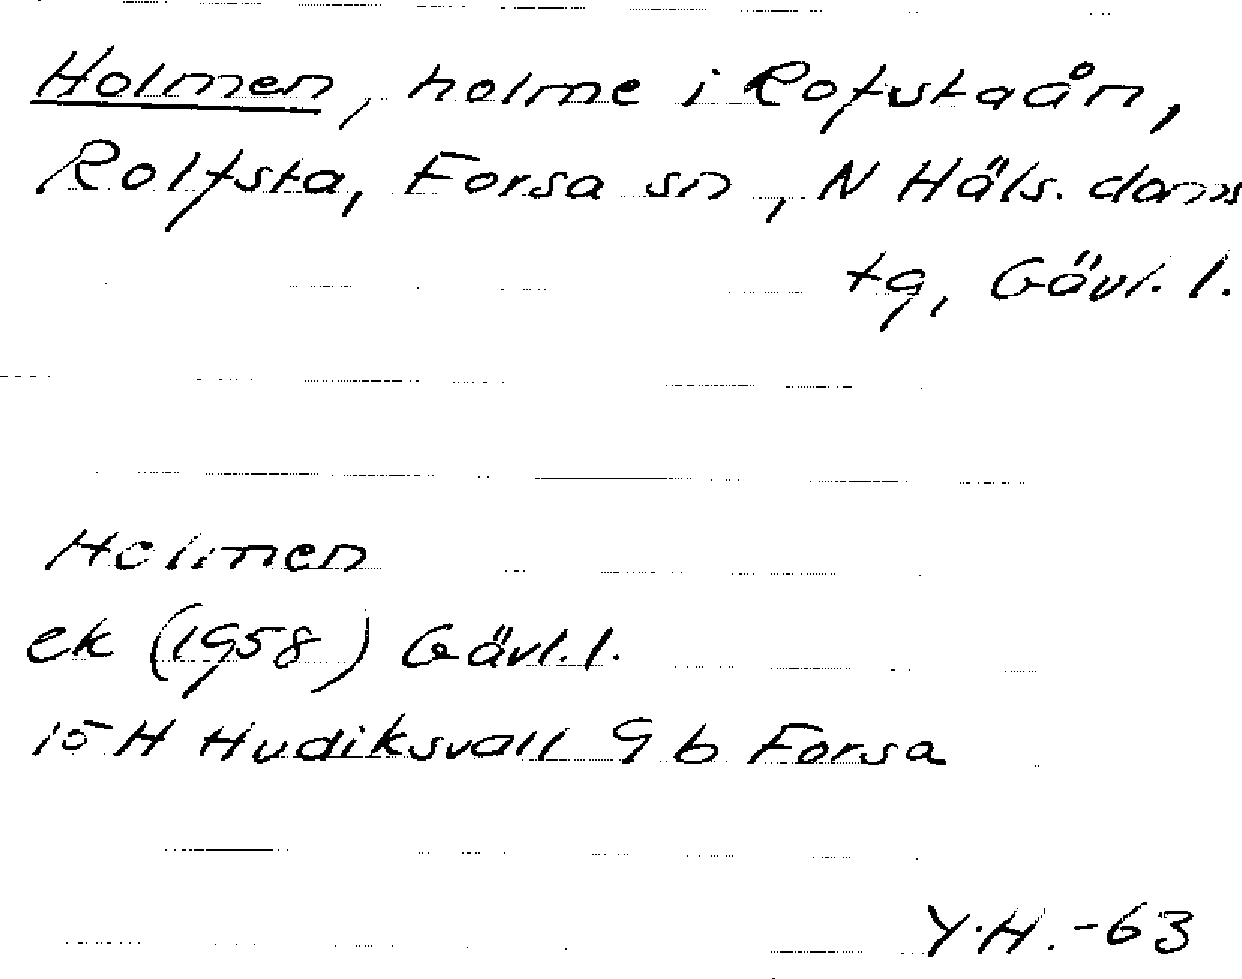 Holmen, holme i Rofstaån,
Rolfsta, Forsa sn, N Häls. doms
tg, Gävl. l.
Holmen
ek (1958) Gävl. l.
15 H Hudiksvall 9 b Forsa
Y.H. -63